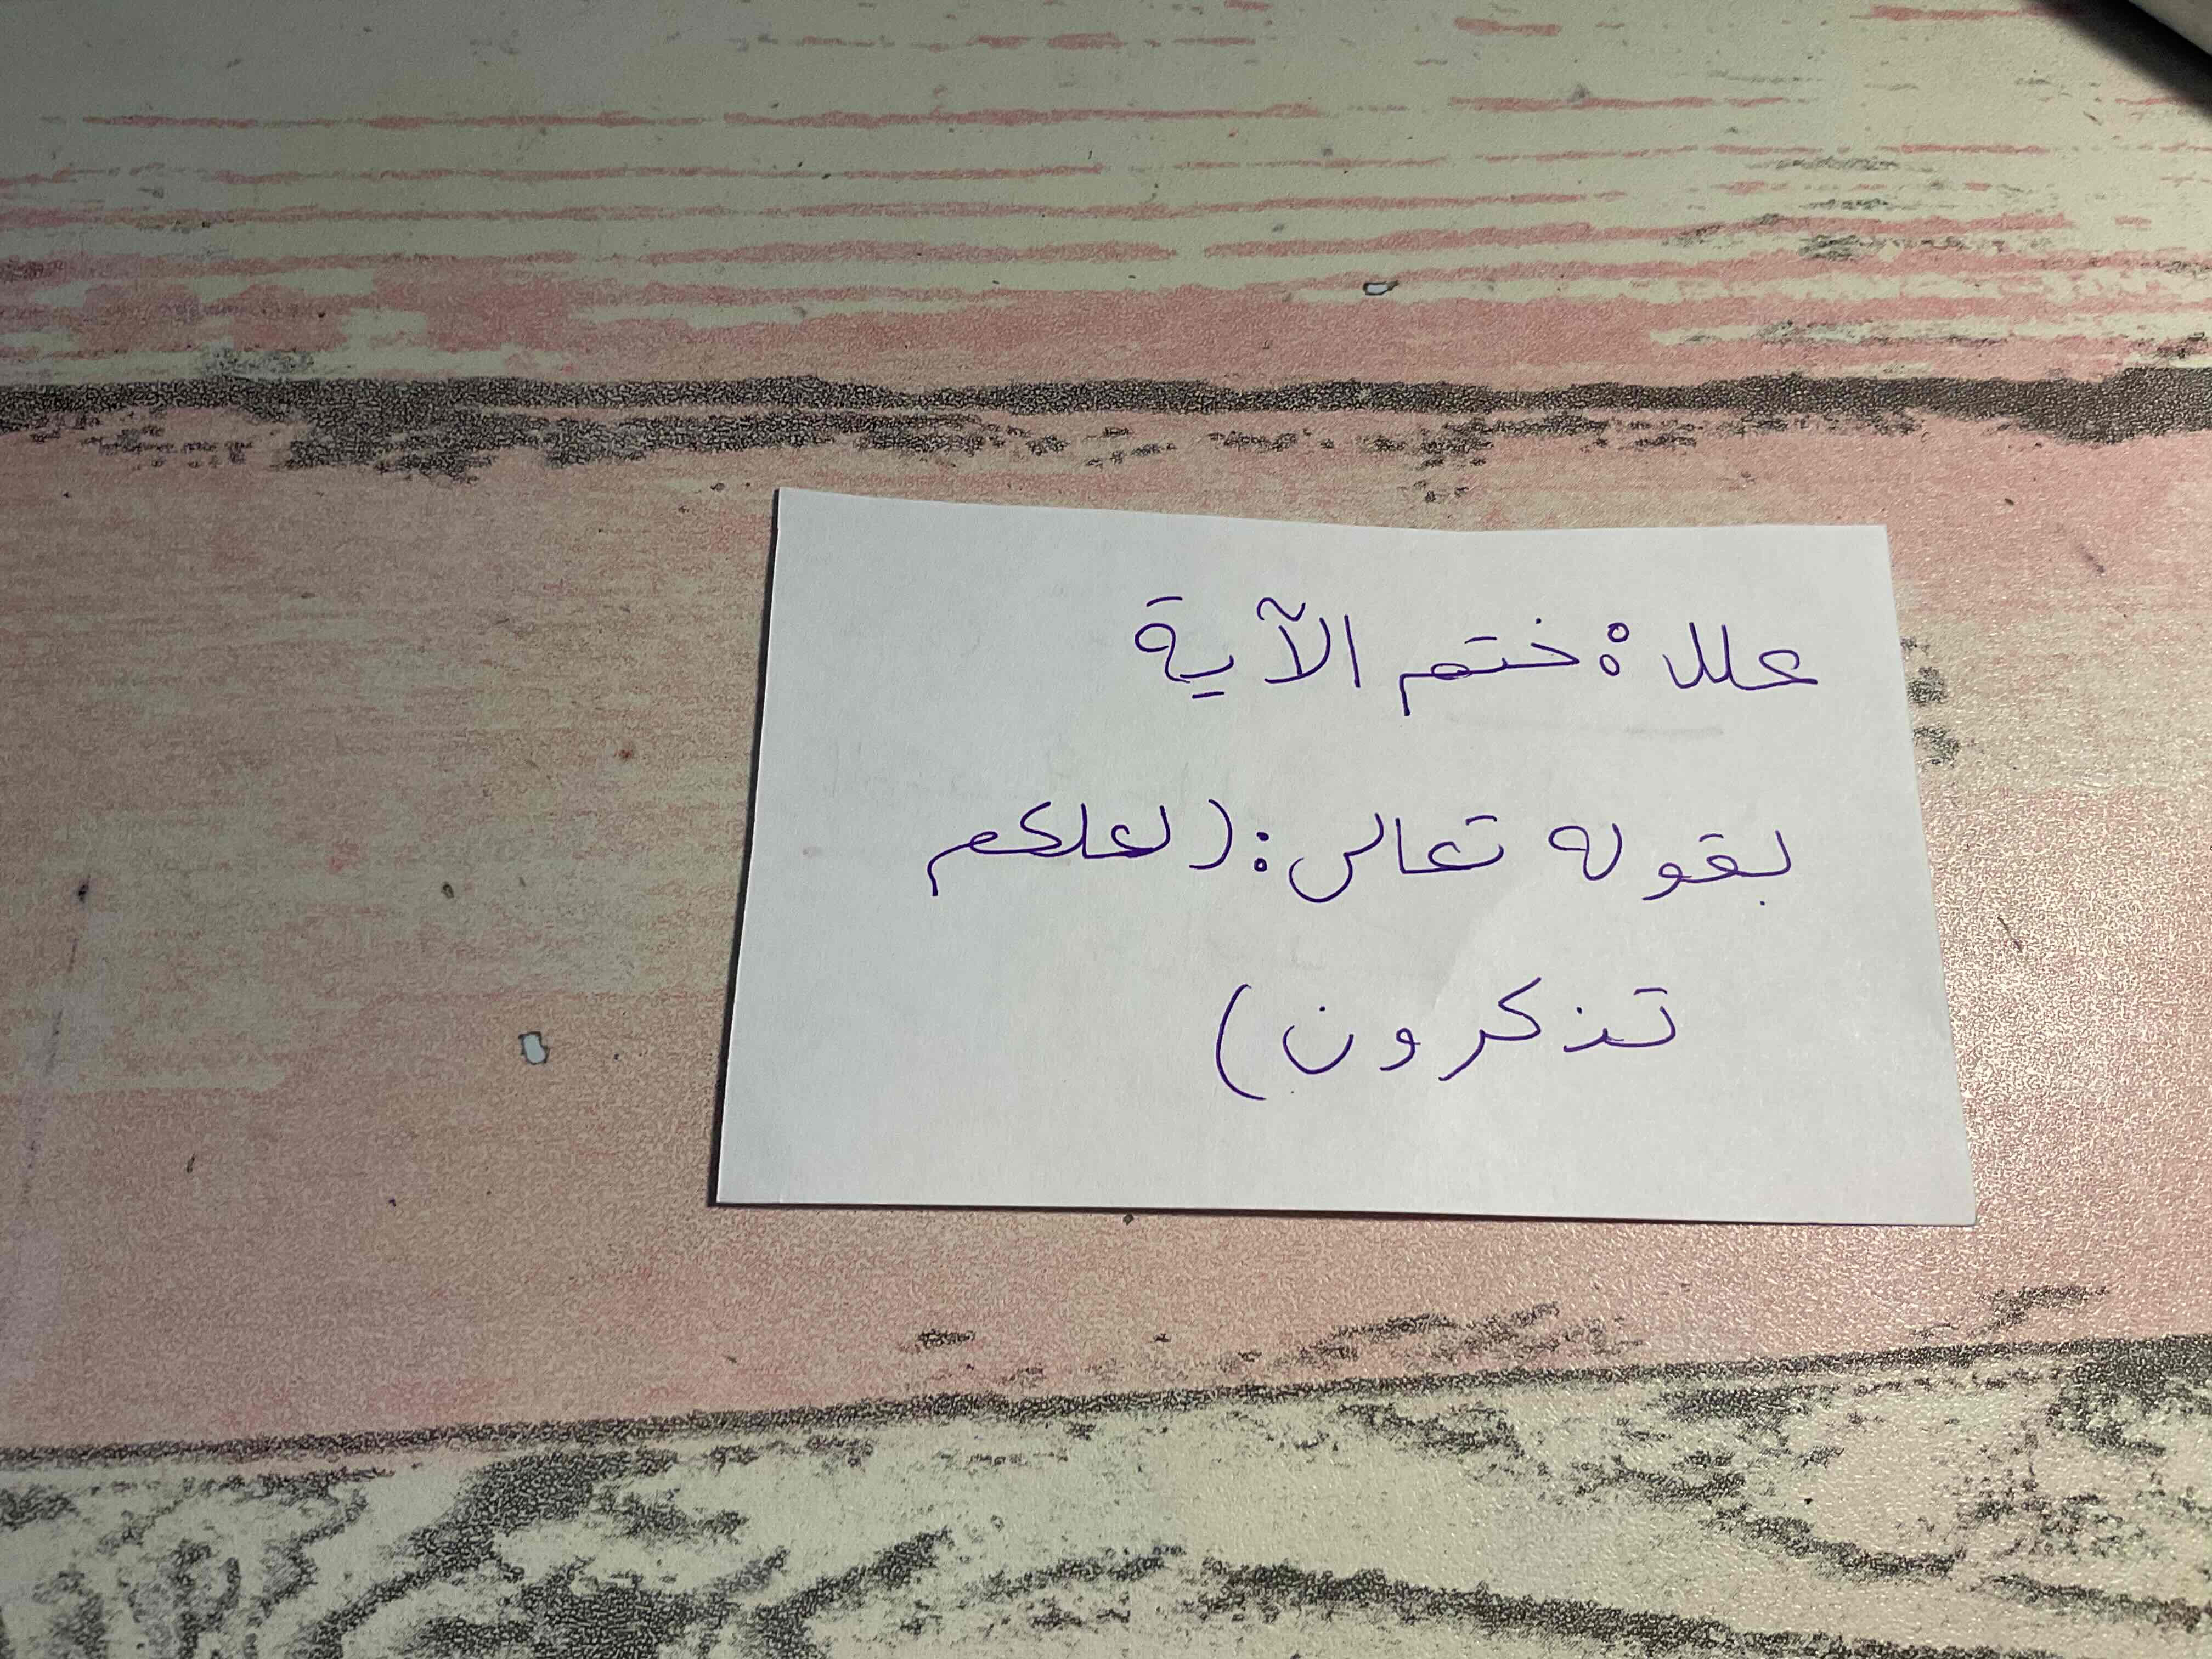 علل: ختم الآية
بقوله تعالى: (لعلكم
تذكرون)